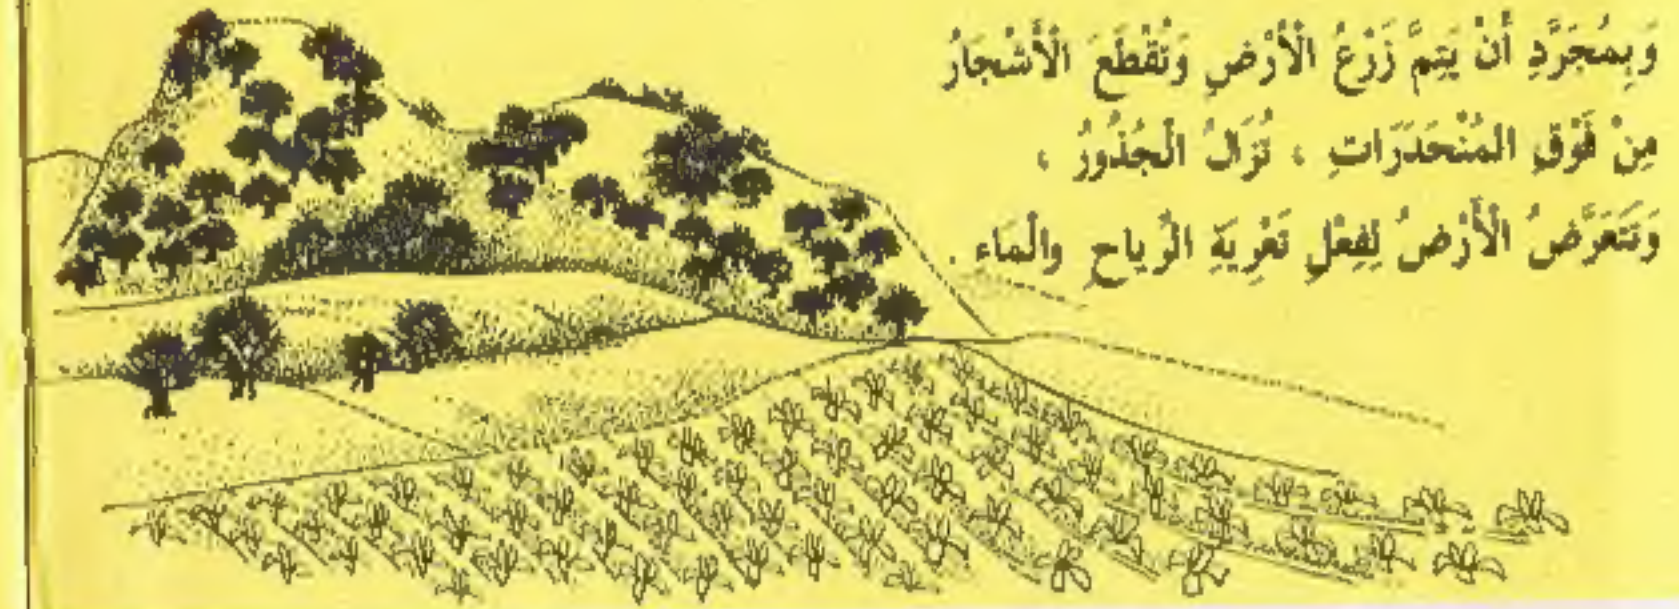 وَبِمُجَرَّدِ أَنْ يَتِمَّ زَرْعُ الْأَرْضِ وَتُقْطَعَ الْأَشْجَارُ
مِنْ فَوْقِ المُنْحَدَرَاتِ ، تُزَالُ الْجُذُورُ ،
وَتَتَعَرَّضُ الْأَرْضُ لِفِعْلِ تَعْرِيَةِ الرِّياحِ والْمَاء .